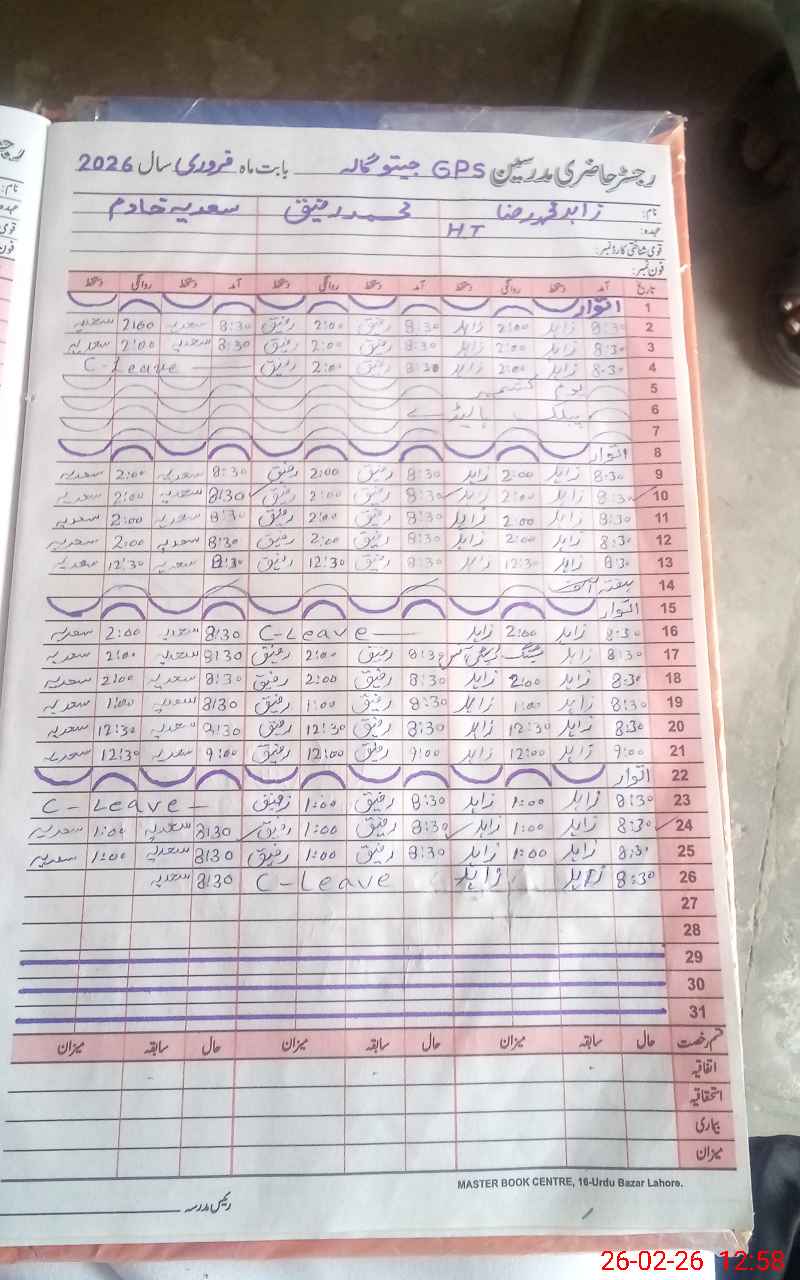 رجسٹر حاضری مدرسین GPS جیتو گالہ بابت ماہ فروری سال 2026
نام: زاہد محمد رضا محمد رفیق سعدیہ خادم
عہدہ: HT
قومی شناختی کارڈ نمبر:
فون نمبر:
تاریخ آمد دستخط روانگی دستخط آمد دستخط روانگی دستخط آمد دستخط روانگی دستخط
1 اتوار
2 8:30 زاہد 2:00 زاہد 8:30 رفیق 2:00 رفیق 8:30 سعدیہ 2:00 سعدیہ
3 8:30 زاہد 2:00 زاہد 8:30 رفیق 2:00 رفیق 8:30 سعدیہ 2:00 سعدیہ
4 8:30 زاہد 2:00 زاہد 8:30 رفیق 2:00 رفیق C-Leave
5 یوم کشمیر
6 پبلک ہالیڈے
7
8 اتوار
9 8:30 زاہد 2:00 زاہد 8:30 رفیق 2:00 رفیق 8:30 سعدیہ 2:00 سعدیہ
10 8:30 زاہد 2:00 زاہد 8:30 رفیق 2:00 رفیق 8:30 سعدیہ 2:00 سعدیہ
11 8:30 زاہد 2:00 زاہد 8:30 رفیق 2:00 رفیق 8:30 سعدیہ 2:00 سعدیہ
12 8:30 زاہد 2:00 زاہد 8:30 رفیق 2:00 رفیق 8:30 سعدیہ 2:00 سعدیہ
13 8:30 زاہد 12:30 زاہد 8:30 رفیق 12:30 رفیق 8:30 سعدیہ 12:30 سعدیہ
14 ہفتہ
15 اتوار
16 8:30 زاہد 2:00 زاہد C-Leave 8:30 سعدیہ 2:00 سعدیہ
17 8:30 زاہد میٹنگ 8:30 رفیق 2:00 رفیق 8:30 سعدیہ 2:00 سعدیہ
18 8:30 زاہد 2:00 زاہد 8:30 رفیق 2:00 رفیق 8:30 سعدیہ 2:00 سعدیہ
19 8:30 زاہد 1:00 زاہد 8:30 رفیق 1:00 رفیق 8:30 سعدیہ 1:00 سعدیہ
20 8:30 زاہد 12:30 زاہد 8:30 رفیق 12:30 رفیق 8:30 سعدیہ 12:30 سعدیہ
21 9:00 زاہد 12:00 زاہد 9:00 رفیق 12:00 رفیق 9:00 سعدیہ 12:30 سعدیہ
22 اتوار
23 8:30 زاہد 1:00 زاہد 8:30 رفیق 1:00 رفیق C-Leave
24 8:30 زاہد 1:00 زاہد 8:30 رفیق 1:00 رفیق 8:30 سعدیہ 1:00 سعدیہ
25 8:30 زاہد 1:00 زاہد 8:30 رفیق 1:00 رفیق 8:30 سعدیہ 1:00 سعدیہ
26 8:30 زاہد زاہد C-Leave 8:30 سعدیہ
27
28
29
30
31
قسم رخصت حال سابقہ میزان حال سابقہ میزان حال سابقہ میزان
اتفاقیہ
استحقاقیہ
بیماری
میزان
MASTER BOOK CENTRE, 16-Urdu Bazar Lahore.
رئیس مدرسہ
26-02-26 12:58